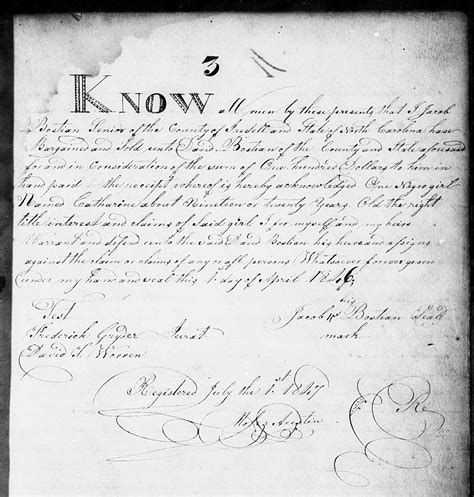 3
KNOW all men by these presents that I Jacob
Bostian Senior of the County of Iredell and State of North Carolina have
Bargained and Sold unto David Bostian of the County and State aforesaid
for and in Consideration of the sum of One hundred Dollars to him in
hand paid the receipt whereof is hereby acknowledged One Negro girl
Named Catharine about Nineteen or twenty Years Old the right
title interest and claims of Said girl I for myself and my heirs
Warrant and defend unto the said David Bostian his heirs and assigns
against the claim or claims of any or all persons Whatsoever forever given
under my hand and seal this 1 day of April 1846
Test
his
Jacob Bostian Seal
mark
Frederick Jurat
David S. Worren
Registered July the 1st 1847
Austin
Re